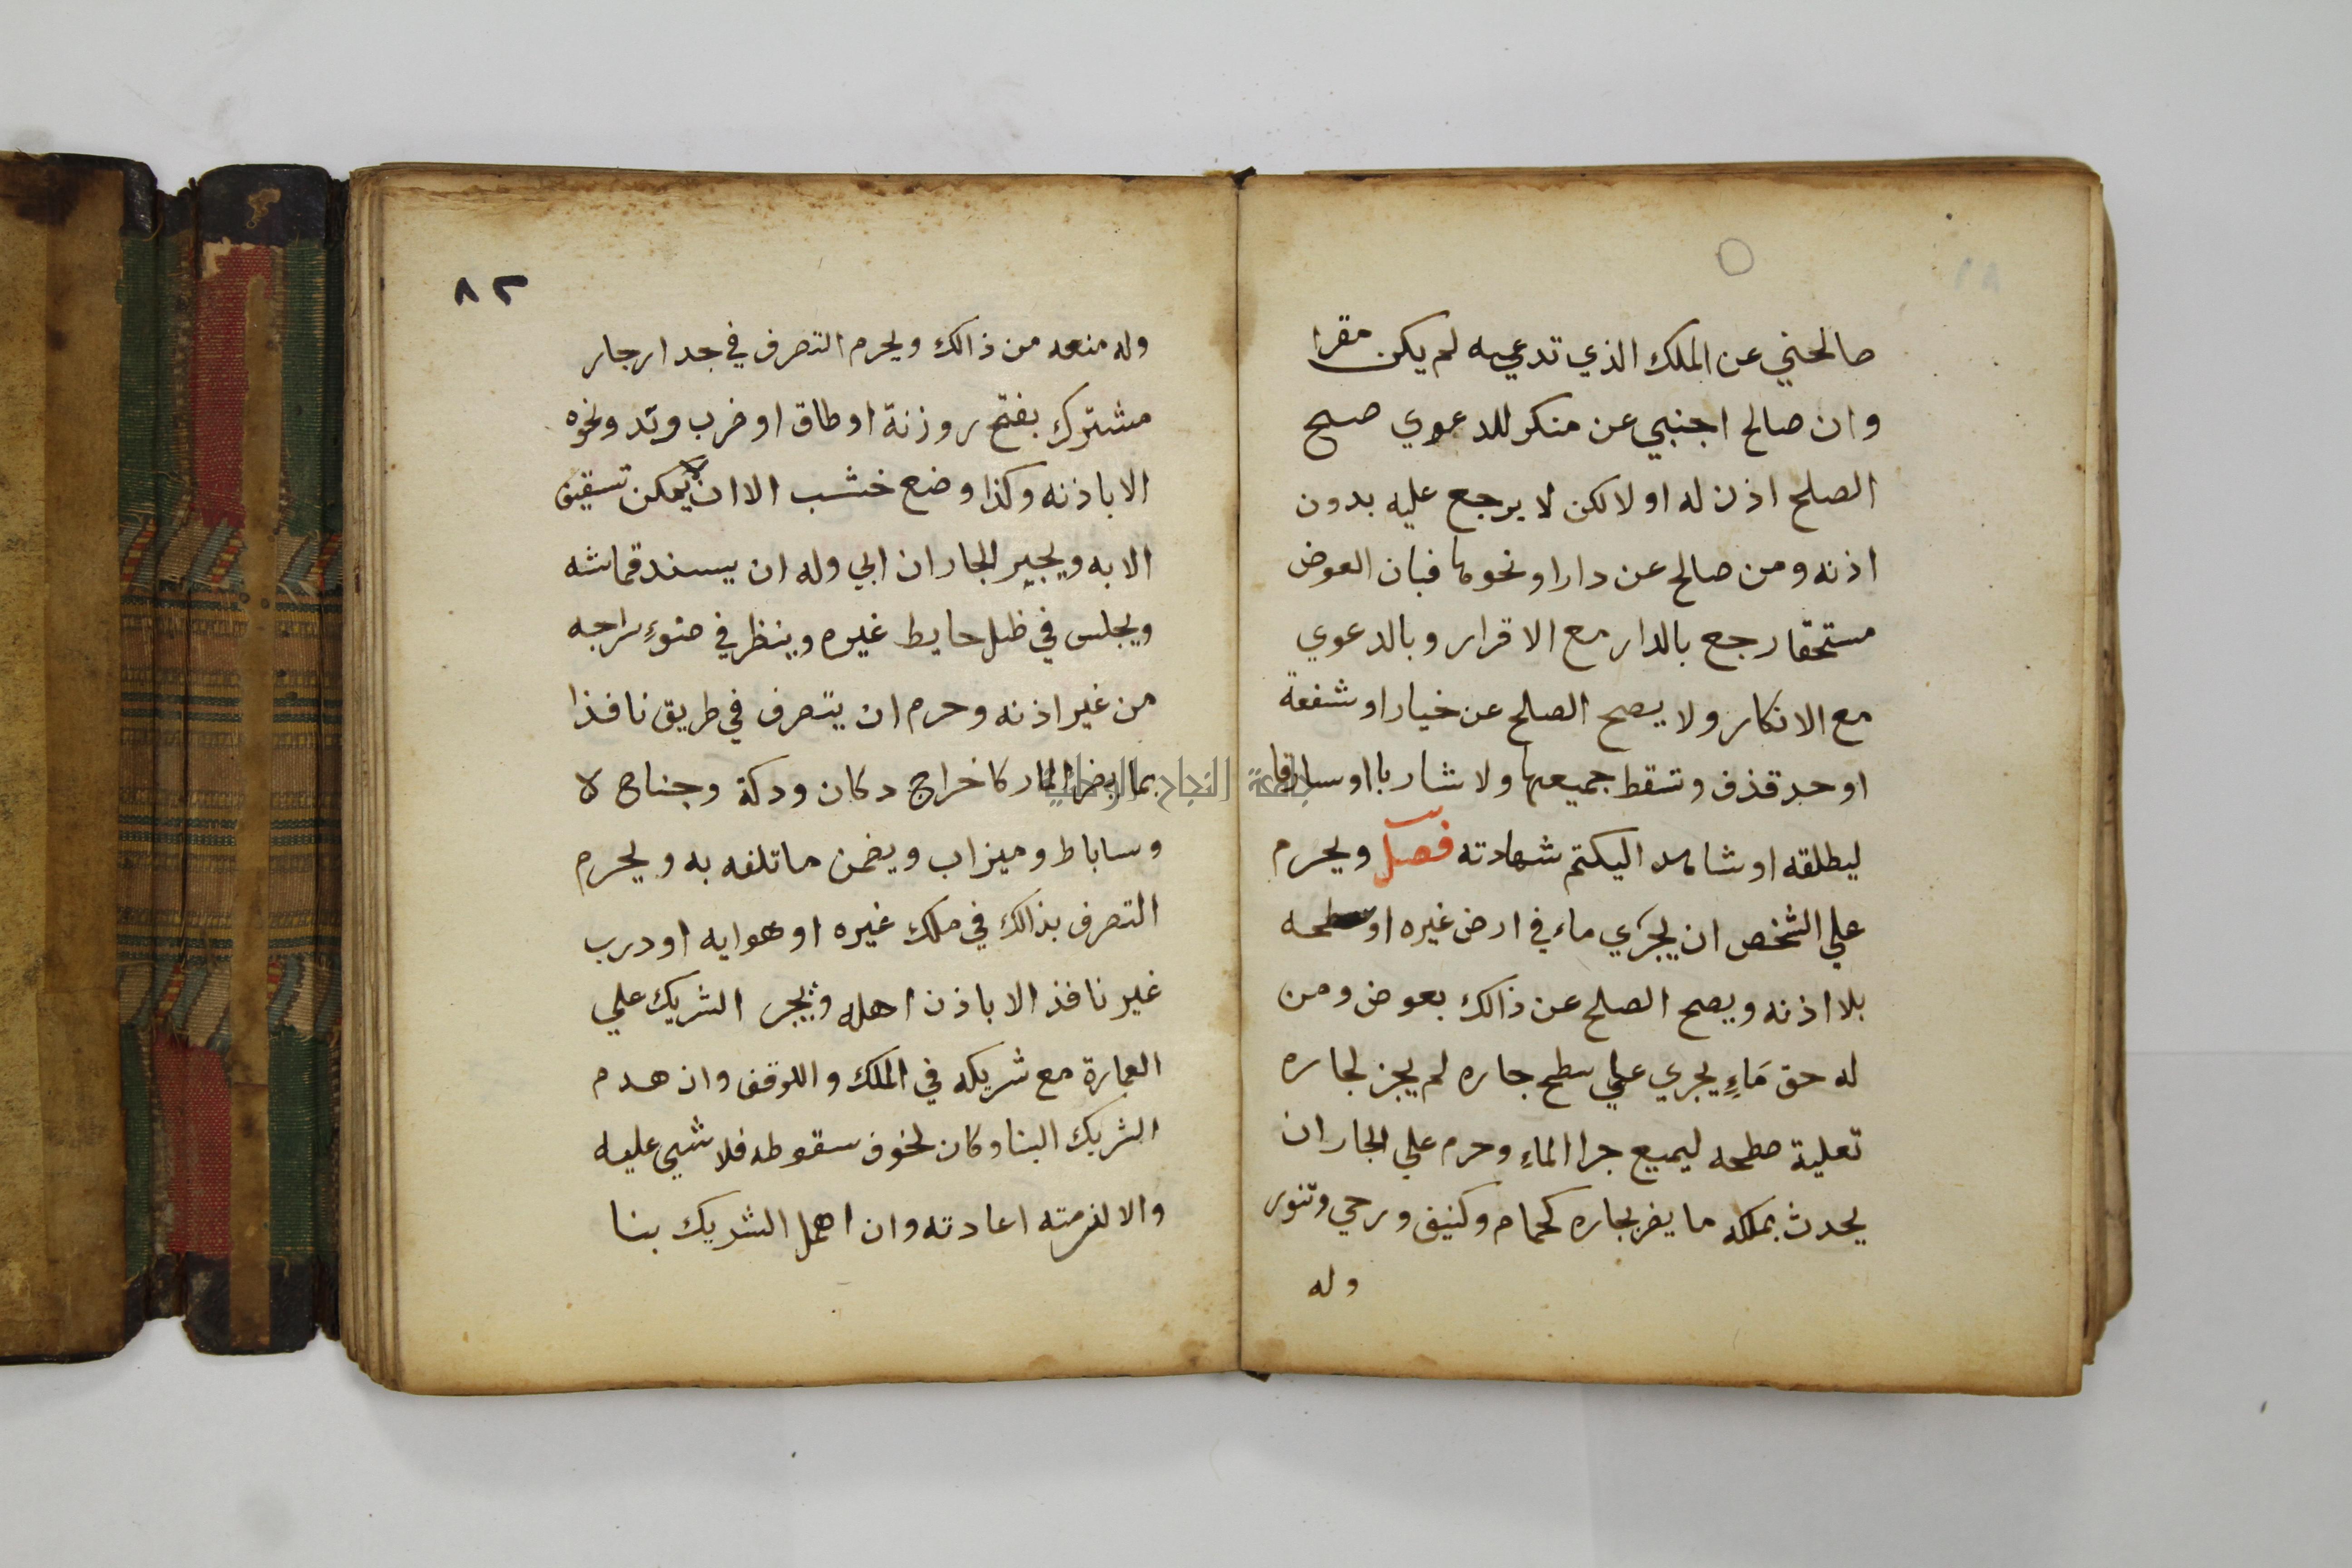 صالحني عن الملك الذي تدعيه لم يكن مقرا
وان صالح اجنبي عن منكر للدعوي صح
الصلح اذن له او لا لكن لا يرجع عليه بدون
اذنه ومن صالح عن دار او نحوها فبان العوض
مستحقا رجع بالدار مع الاقرار وبالدعوي
مع الانكار ولا يصح الصلح عن خيار او شفعة
او حد قذف وتسقط جميعها ولا شاربا او سارقا
ليطلقه او شاهد اليكتم شهادته فصل ويحرم
علي الشخص ان يجري ماء في ارض غيره او سطحه
بلا اذنه ويصح الصلح عن ذالك بعوض ومن
له حق مَاءٍ يجري علي سطح جاره لم يجز لجاره
تعلية سطحه ليميع جرا الماءِ وحرم علي الجار ان
يحدث بملكه ما يضر بجاره كحمام وكنيف ورحي وتنور
وله
٨٢
وله منعه من ذالك ويحرم التصرف في جدار جار
مشترك بفتح روزنة او طاق او ضرب وتد ونحوه
الا باذنه وكذا وضع خشب الا ان لا يمكن تسقيف
الا به ويجبر الجار ان ابي وله ان يسند قماشه
ويجلس في ظل حايط غيره وينظر في ضوءِ سراجه
من غير اذنه وحرم ان يتصرف في طريق نافذا
بما يضر المار كاخراج دكان ودكة وجناح لا
وساباط وميزاب ويضمن ما تلفه به ويحرم
التصرف بذالك في ملك غيره او هوايه او درب
غير نافذ الا باذن اهله ويجبر الشريك علي
العمارة مع شريكه في الملك والوقف وان هدم
الشريك البنا وكان لخوف سقوطه فلا شي عليه
والا لزمته اعادته وان اهمل الشريك بنا
جامعة النجاح الوطنية